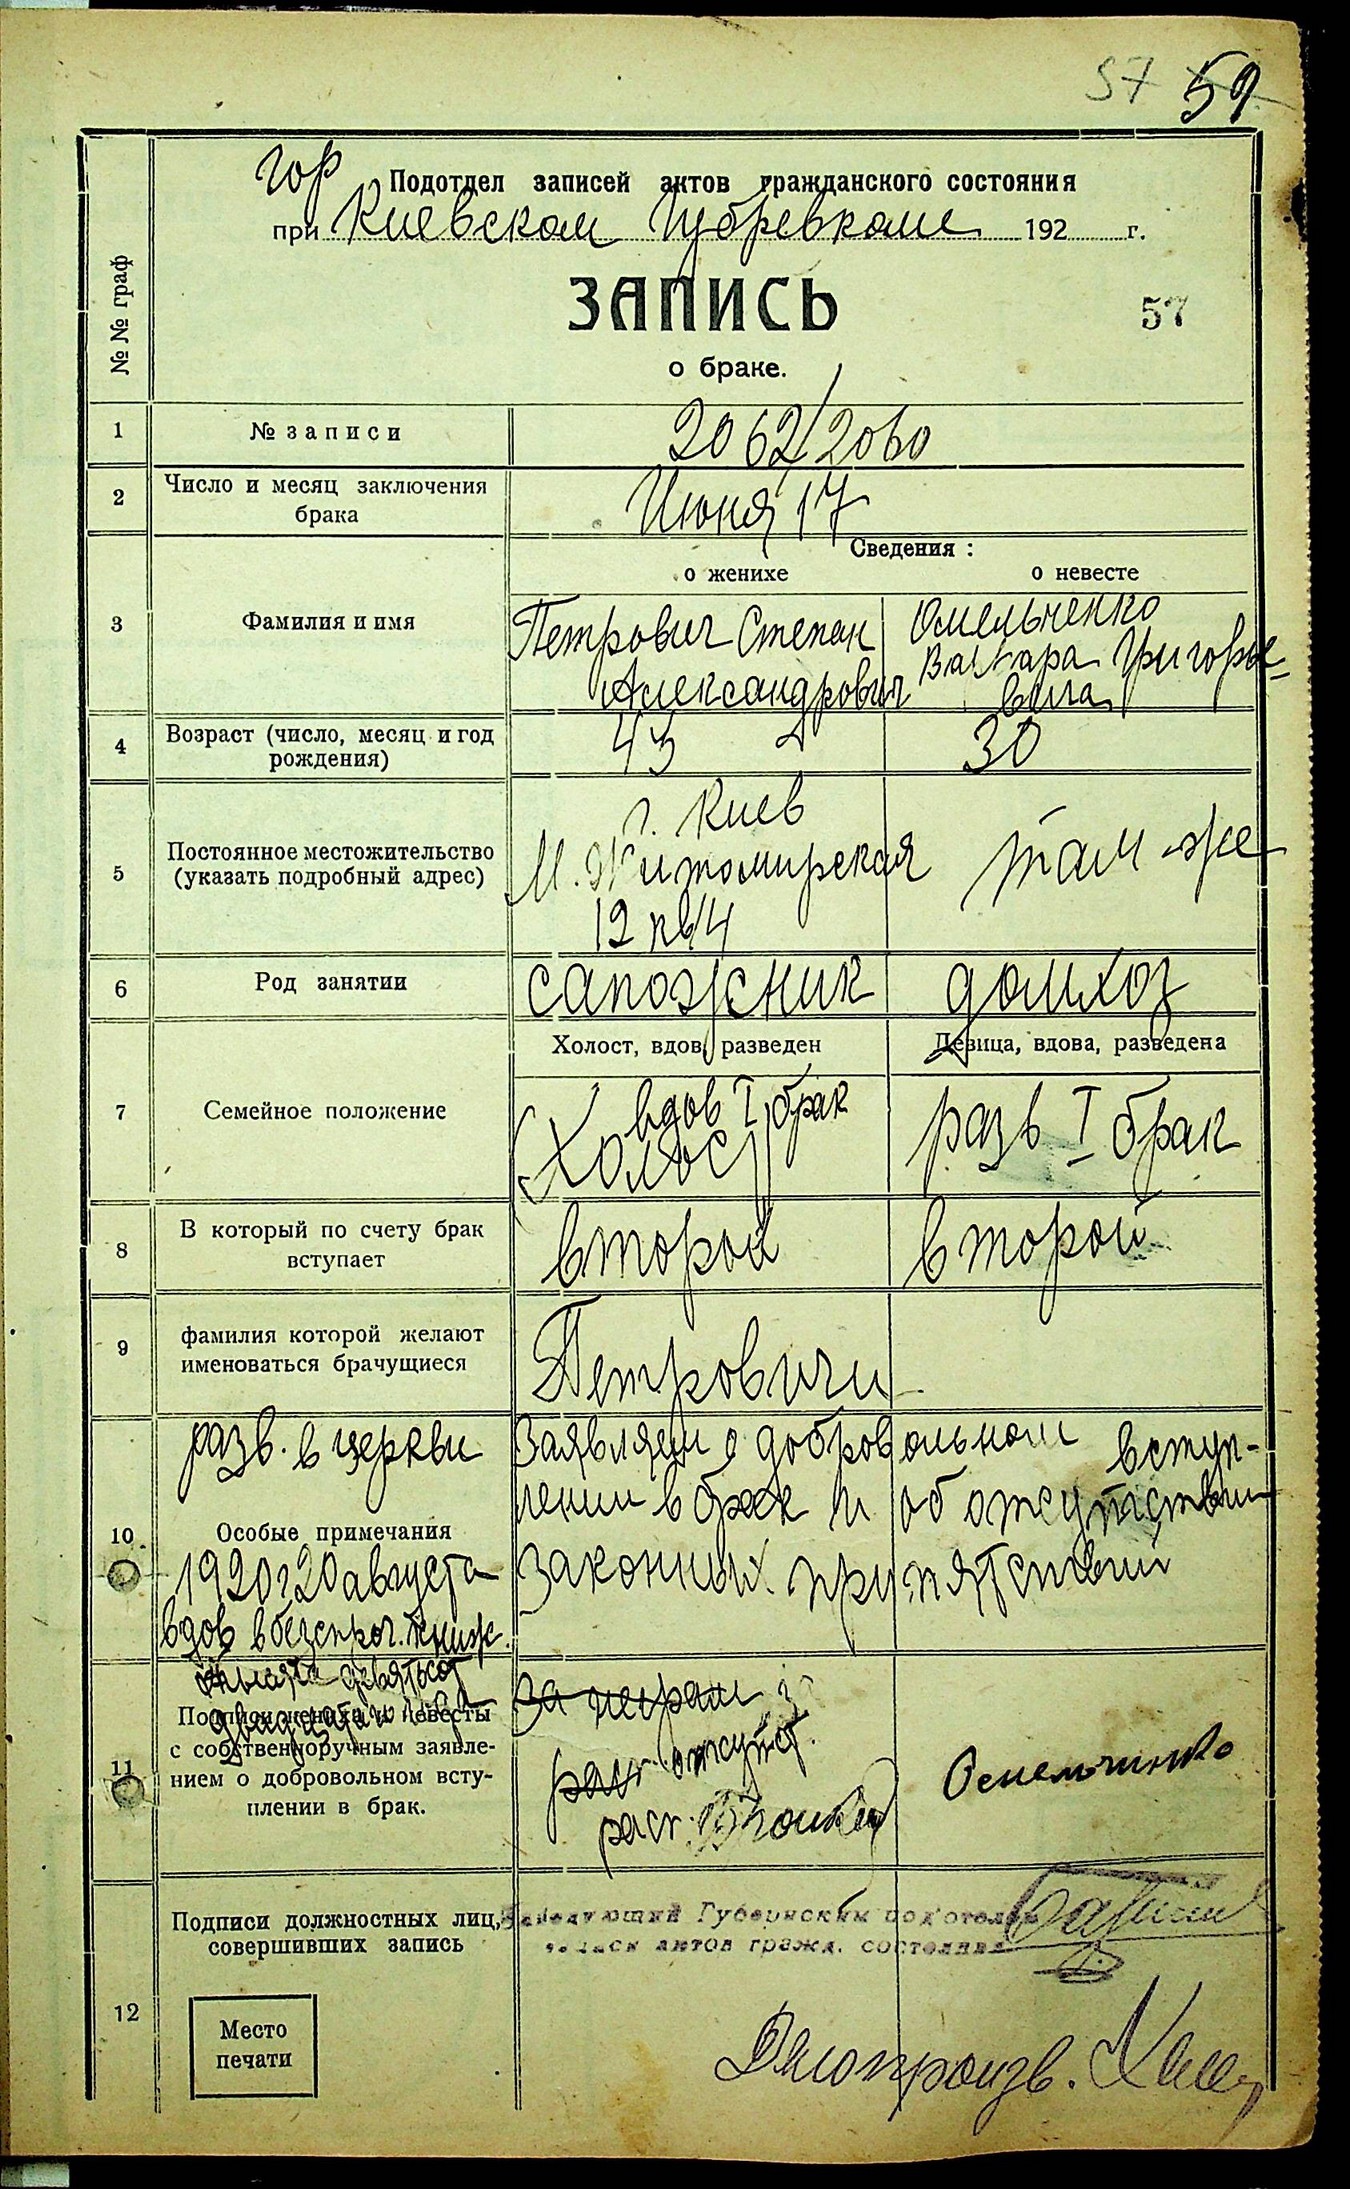 57 59
гор Подотдел записей актов гражданского состояния
при Киевском Губревкоме 192 г.
ЗАПИСЬ
57
о браке.
№№ граф
1 № записи 2062/2060
2 Число и месяц заключения
брака
Июня 17
Сведения:
о женихе о невесте
3 Фамилия и имя
Петрович Степан
Александрович
Омельченко
Варвара Григорье-
вна
4 Возраст (число, месяц и год
рождения)
43 30
5 Постоянное местожительство
(указать подробный адрес)
г. Киев
М. Житомирская
12 кв 14
там же
6 Род занятии сапожник домхоз
Холост, вдов, разведен Девица, вдова, разведена
7 Семейное положение
вдов I брак
Холост
разв I брак
8 В который по счету брак
вступает
второй второй
9 фамилия которой желают
именоваться брачущиеся
Петровичи
10 разв. в церкви
Особые примечания
1920 г 20 августа
вдов в безсроч. книж.
Заявляем о добровольном вступ-
лении в брак и об отсутствии
законных припятствий
тысяча девятьсот
11 Подписи жениха и невесты
с собственноручным заявле-
нием о добровольном всту-
плении в брак.
За неграм
расп
расп.
Омельченко
12 Подписи должностных лиц,
совершивших запись
Заведующий Губернским подотделом
записи актов гражд. состояния
Место
печати
Делопроизв.